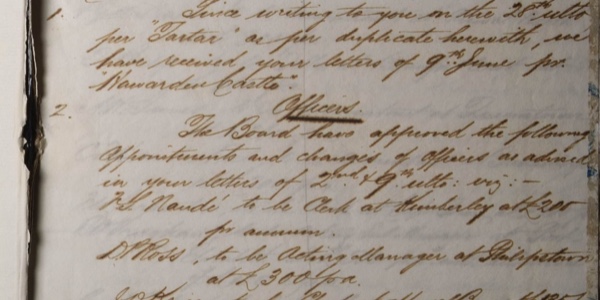 1. Since writing to you on the 26th ulto
per "Tartar" as per duplicate herewith, we
have received your letters of 9th June pr.
"Hawarden Castle".
2. Officers.
The Board have approved the following
Appointments and changes of officers as advised
in your letters of 2nd & 9th ulto: viz: -
Naudé to be Clerk at Kimberley at £200
pr annum.
D. Ross, to be Acting Manager at Philipstown
at £300 p.a.